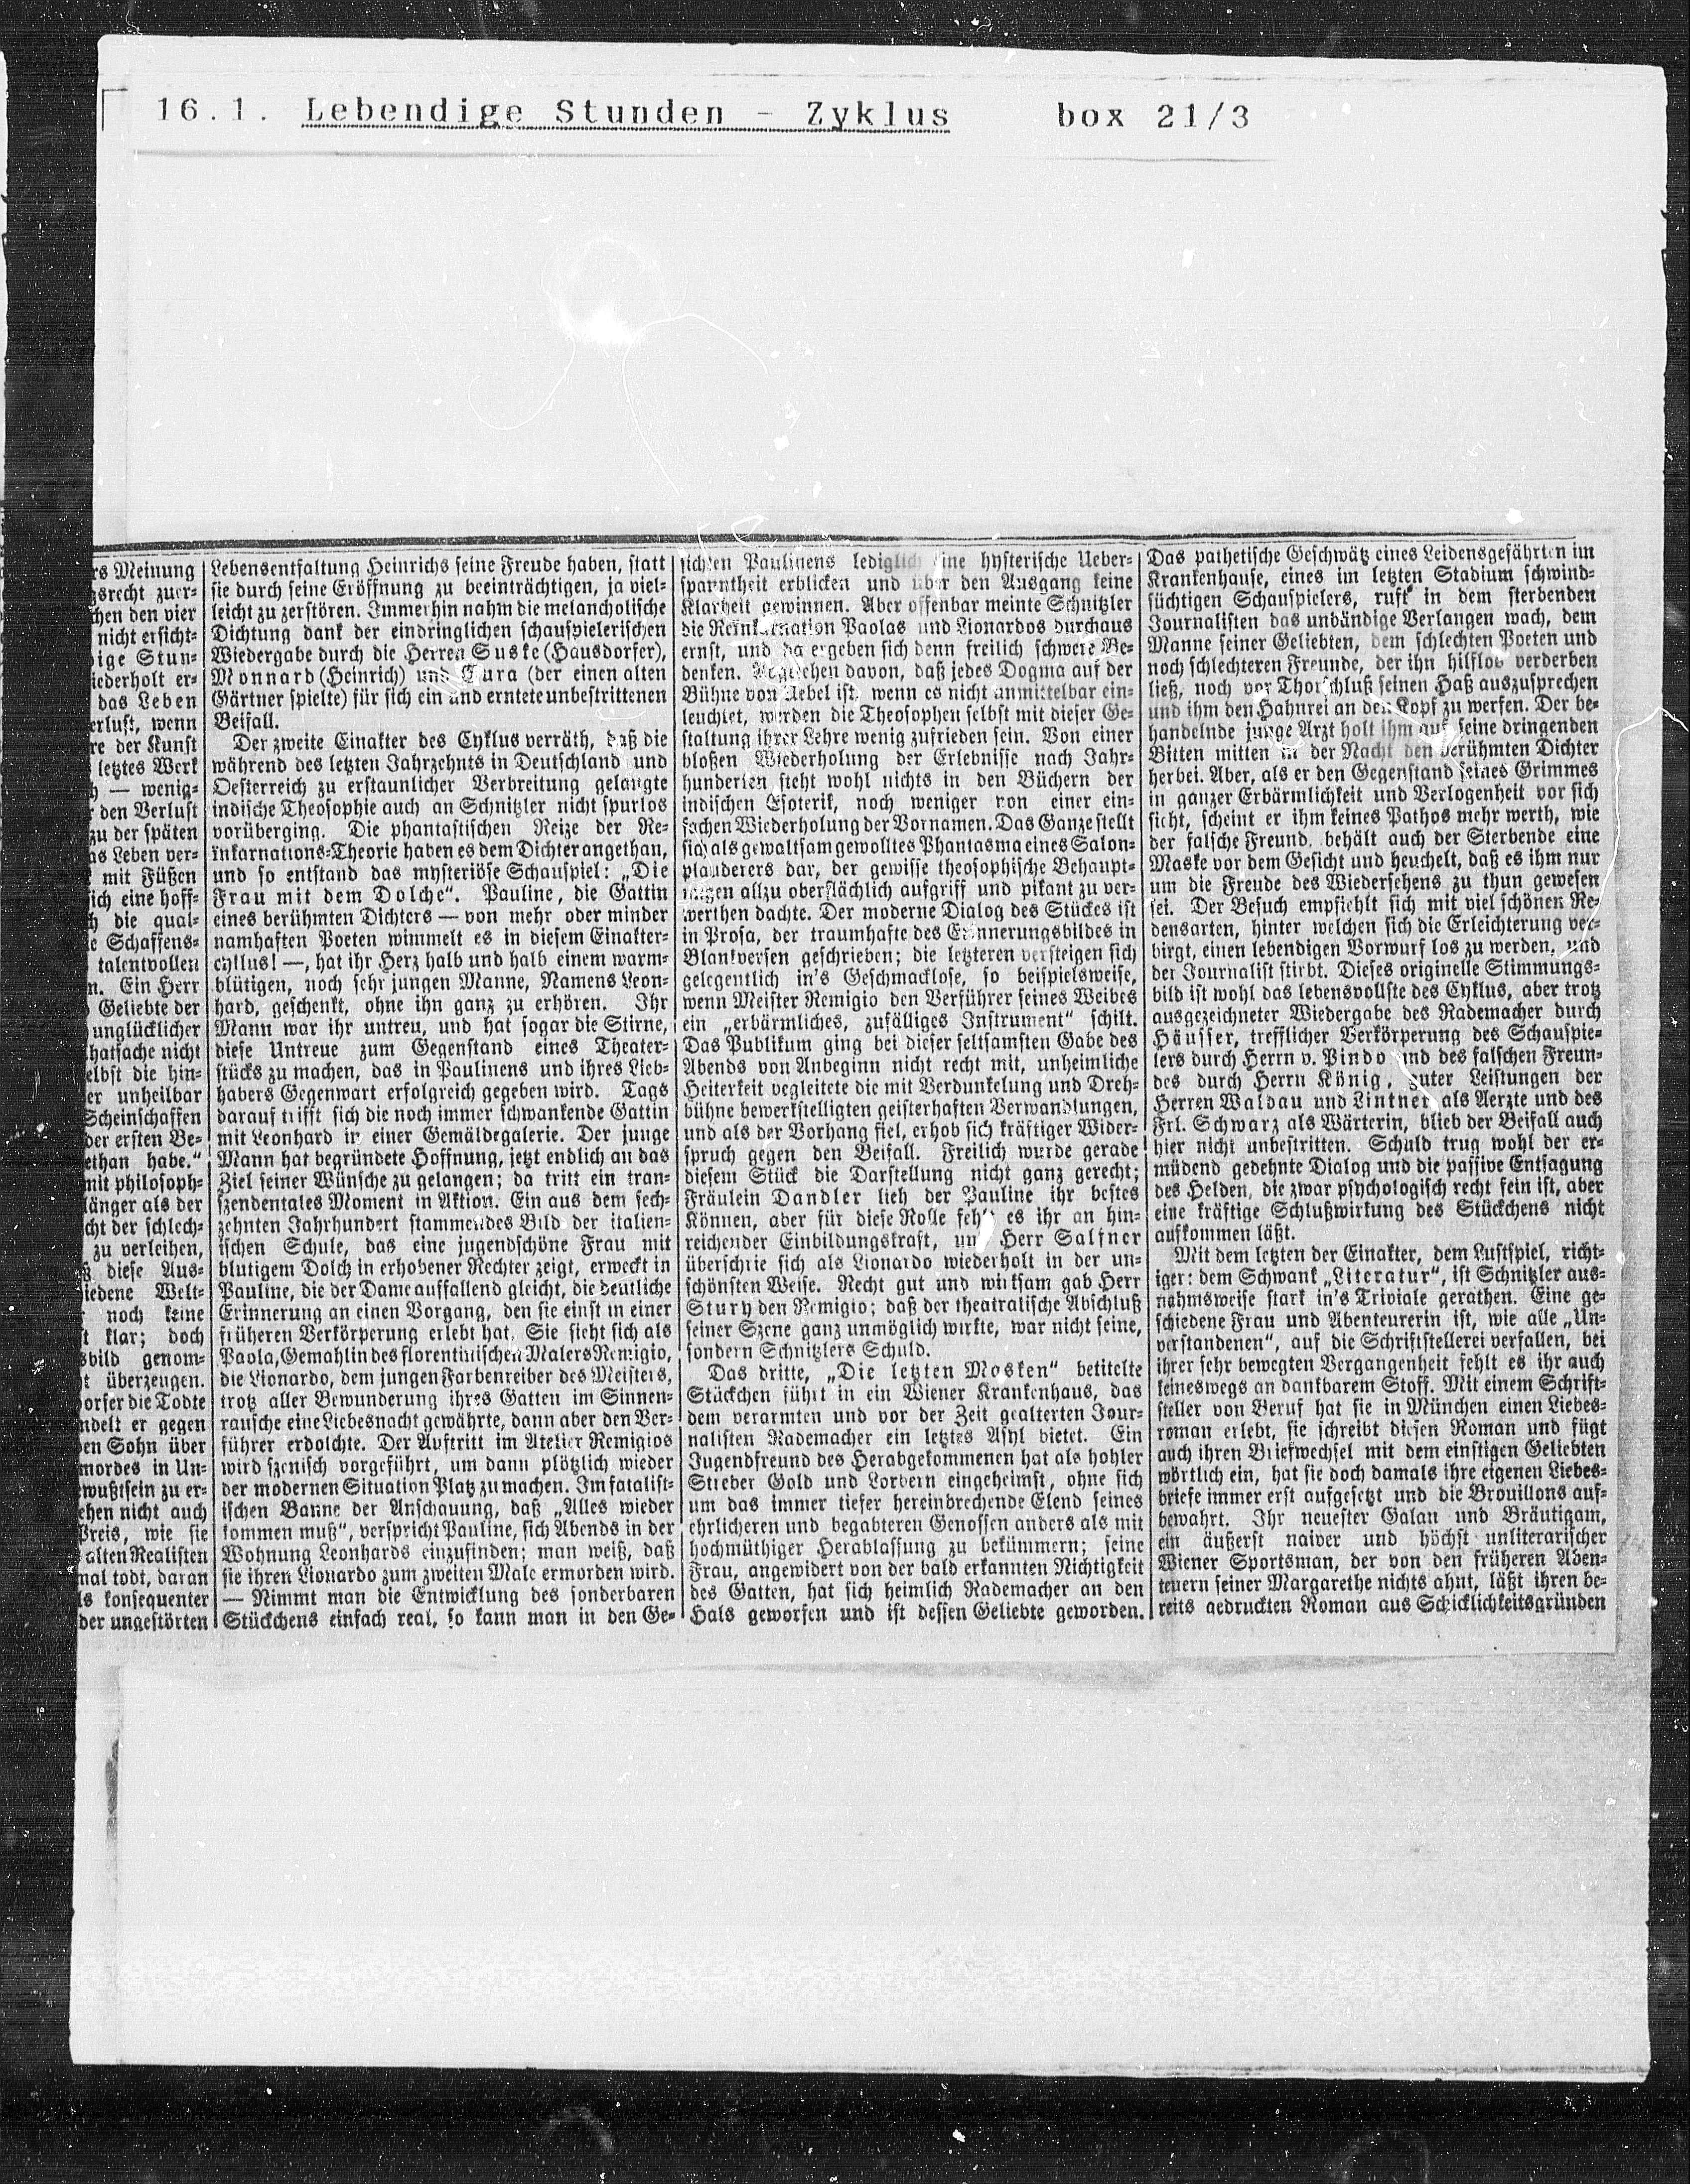 16.1. Lebendige Stunden - Zyklus box 21/3
rs Meinung
gsrecht zuer-
chen den vier
nicht ersicht-
ige Stun-
iederholt er-
das Leben
erlust, wenn
re der Kunst
letztes Werk
h — wenig-
r den Verlust
zu der späten
as Leben ver-
mit Füßen
ich eine hoff-
h die qual-
e Schaffens-
talentvollen
n. Ein Herr
Geliebte der
unglücklicher
hatsache nicht
elbst die hin-
er unheilbar
Scheinschaffen
der ersten Be-
ethan habe."
mit philosoph-
länger als der
cht der schlech-
zu verleihen,
ß diese Aus-
iedene Welt-
noch keine
t klar; doch
sbild genom-
t überzeugen.
orfer die Todte
ndelt er gegen
en Sohn über
mordes in Un-
wußtsein zu er-
ehen nicht auch
Preis, wie sie
alten Realisten
mal todt, daran
ls konsequenter
der ungestörten
Lebensentfaltung Heinrichs seine Freude haben, statt
sie durch seine Eröffnung zu beeinträchtigen, ja viel-
leicht zu zerstören. Immerhin nahm die melancholische
Dichtung dank der eindringlichen schauspielerischen
Wiedergabe durch die Herren Suske (Hausdorfer),
Monnard (Heinrich) und Cura (der einen alten
Gärtner spielte) für sich ein und erntete unbestrittenen
Beifall.
Der zweite Einakter des Cyklus verräth, daß die
während des letzten Jahrzehnts in Deutschland und
Oesterreich zu erstaunlicher Verbreitung gelangte
indische Theosophie auch an Schnitzler nicht spurlos
vorüberging. Die phantastischen Reize der Re-
inkarnations-Theorie haben es dem Dichter angethan,
und so entstand das mysteriöse Schauspiel: „Die
Frau mit dem Dolche“. Pauline, die Gattin
eines berühmten Dichters — von mehr oder minder
namhaften Poeten wimmelt es in diesem Einakter-
cyllus! —, hat ihr Herz halb und halb einem warm-
blütigen, noch sehr jungen Manne, Namens Leon-
hard, geschenkt, ohne ihn ganz zu erhören. Ihr
Mann war ihr untreu, und hat sogar die Stirne,
diese Untreue zum Gegenstand eines Theater-
stücks zu machen, das in Paulinens und ihres Lieb-
habers Gegenwart erfolgreich gegeben wird. Tags
darauf trifft sich die noch immer schwankende Gattin
mit Leonhard in einer Gemäldegalerie. Der junge
Mann hat begründete Hoffnung, jetzt endlich an das
Ziel seiner Wünsche zu gelangen; da tritt ein tran-
szendentales Moment in Aktion. Ein aus dem sech-
zehnten Jahrhundert stammendes Bild der italien-
ischen Schule, das eine jugendschöne Frau mit
blutigem Dolch in erhobener Rechter zeigt, erweckt in
Pauline, die der Dame auffallend gleicht, die deutliche
Erinnerung an einen Vorgang, den sie einst in einer
früheren Verkörperung erlebt hat. Sie sieht sich als
Paola, Gemahlin des florentinischen Malers Remigio,
die Lionardo, dem jungen Farbenreiber des Meisters,
trotz aller Bewunderung ihres Gatten im Sinnen-
rausche eine Liebesnacht gewährte, dann aber den Ver-
führer erdolchte. Der Auftritt im Atelier Remigios
wird szenisch vorgeführt, um dann plötzlich wieder
der modernen Situation Platz zu machen. Im fatalist-
ischen Banne der Anschauung, daß „Alles wieder
kommen muß“, verspricht Pauline, sich Abends in der
Wohnung Leonhards einzufinden; man weiß, daß
sie ihren Lionardo zum zweiten Male ermorden wird.
— Nimmt man die Entwicklung des sonderbaren
Stückchens einfach real, so kann man in den Ge-
sichten Paulinens lediglich eine hysterische Ueber-
spanntheit erblicken und über den Ausgang keine
Klarheit gewinnen. Aber offenbar meinte Schnitzler
die Reinkarnation Paolas und Lionardos durchaus
ernst, und da ergeben sich denn freilich schwere Be-
denken. Abgesehen davon, daß jedes Dogma auf der
Bühne von Uebel ist, wenn es nicht unmittelbar ein-
leuchtet, werden die Theosophen selbst mit dieser Ge-
staltung ihrer Lehre wenig zufrieden sein. Von einer
bloßen Wiederholung der Erlebnisse nach Jahr-
hunderten steht wohl nichts in den Büchern der
indischen Esoterik, noch weniger von einer ein-
fachen Wiederholung der Vornamen. Das Ganze stellt
sich als gewaltsam gewolltes Phantasma eines Salon-
plauderers dar, der gewisse theosophische Behaupt-
ungen allzu oberflächlich aufgriff und pikant zu ver-
werthen dachte. Der moderne Dialog des Stückes ist
in Prosa, der traumhafte des Erinnerungsbildes in
Blankversen geschrieben; die letzteren versteigen sich
gelegentlich in's Geschmacklose, so beispielsweise,
wenn Meister Remigio den Verführer seines Weibes
ein „erbärmliches, zufälliges Instrument“ schilt.
Das Publikum ging bei dieser seltsamsten Gabe des
Abends von Anbeginn nicht recht mit, unheimliche
Heiterkeit begleitete die mit Verdunkelung und Dreh-
bühne bewerkstelligten geisterhaften Verwandlungen,
und als der Vorhang fiel, erhob sich kräftiger Wider-
spruch gegen den Beifall. Freilich wurde gerade
diesem Stück die Darstellung nicht ganz gerecht;
Fräulein Dandler lieh der Pauline ihr bestes
Können, aber für diese Rolle fehlt es ihr an hin-
reichender Einbildungskraft, und Herr Salfner
überschrie sich als Lionardo wiederholt in der un-
schönsten Weise. Recht gut und wirksam gab Herr
Stury den Remigio; daß der theatralische Abschluß
seiner Szene ganz unmöglich wirkte, war nicht seine,
sondern Schnitzlers Schuld.
Das dritte, „Die letzten Masken“ betitelte
Stückchen führt in ein Wiener Krankenhaus, das
dem verarmten und vor der Zeit gealterten Jour-
nalisten Rademacher ein letztes Asyl bietet. Ein
Jugendfreund des Herabgekommenen hat als hohler
Streber Gold und Lorbern eingeheimst, ohne sich
um das immer tiefer hereinbrechende Elend seines
ehrlicheren und begabteren Genossen anders als mit
hochmüthiger Herablassung zu bekümmern; seine
Frau, angewidert von der bald erkannten Nichtigkeit
des Gatten, hat sich heimlich Rademacher an den
Hals geworfen und ist dessen Geliebte geworden.
Das pathetische Geschwätz eines Leidensgefährten im
Krankenhause, eines im letzten Stadium schwind-
süchtigen Schauspielers, ruft in dem sterbenden
Journalisten das unbändige Verlangen wach, dem
Manne seiner Geliebten, dem schlechten Poeten und
noch schlechteren Freunde, der ihn hilflos verderben
ließ, noch vor Thorschluß seinen Haß auszusprechen
und ihm den Hahnrei an den Kopf zu werfen. Der be-
handelnde junge Arzt holt ihm auf seine dringenden
Bitten mitten in der Nacht den berühmten Dichter
herbei. Aber, als er den Gegenstand seines Grimmes
in ganzer Erbärmlichkeit und Verlogenheit vor sich
sieht, scheint er ihm keines Pathos mehr werth, wie
der falsche Freund, behält auch der Sterbende eine
Maske vor dem Gesicht und heuchelt, daß es ihm nur
um die Freude des Wiedersehens zu thun gewesen
sei. Der Besuch empfiehlt sich mit viel schönen Re-
densarten, hinter welchen sich die Erleichterung ver-
birgt, einen lebendigen Vorwurf los zu werden, und
der Journalist stirbt. Dieses originelle Stimmungs-
bild ist wohl das lebensvollste des Cyklus, aber trotz
ausgezeichneter Wiedergabe des Rademacher durch
Häusser, trefflicher Verkörperung des Schauspie-
lers durch Herrn v. Pindo und des falschen Freun-
des durch Herrn König, guter Leistungen der
Herren Waldau und Lintner als Aerzte und des
Frl. Schwarz als Wärterin, blieb der Beifall auch
hier nicht unbestritten. Schuld trug wohl der er-
müdend gedehnte Dialog und die passive Entsagung
des Helden, die zwar psychologisch recht fein ist, aber
eine kräftige Schlußwirkung des Stückchens nicht
aufkommen läßt.
Mit dem letzten der Einakter, dem Lustspiel, richt-
iger: dem Schwank „Literatur“, ist Schnitzler aus-
nahmsweise stark in's Triviale gerathen. Eine ge-
schiedene Frau und Abenteurerin ist, wie alle „Un-
verstandenen“, auf die Schriftstellerei verfallen, bei
ihrer sehr bewegten Vergangenheit fehlt es ihr auch
keineswegs an dankbarem Stoff. Mit einem Schrift-
steller von Beruf hat sie in München einen Liebes-
roman erlebt, sie schreibt diesen Roman und fügt
auch ihren Briefwechsel mit dem einstigen Geliebten
wörtlich ein, hat sie doch damals ihre eigenen Liebes-
briefe immer erst aufgesetzt und die Brouillons auf-
bewahrt. Ihr neuester Galan und Bräutigam,
ein äußerst naiver und höchst unliterarischer
Wiener Sportsman, der von den früheren Aben-
teuern seiner Margarethe nichts ahnt, läßt ihren be-
reits gedruckten Roman aus Schicklichkeitsgründen